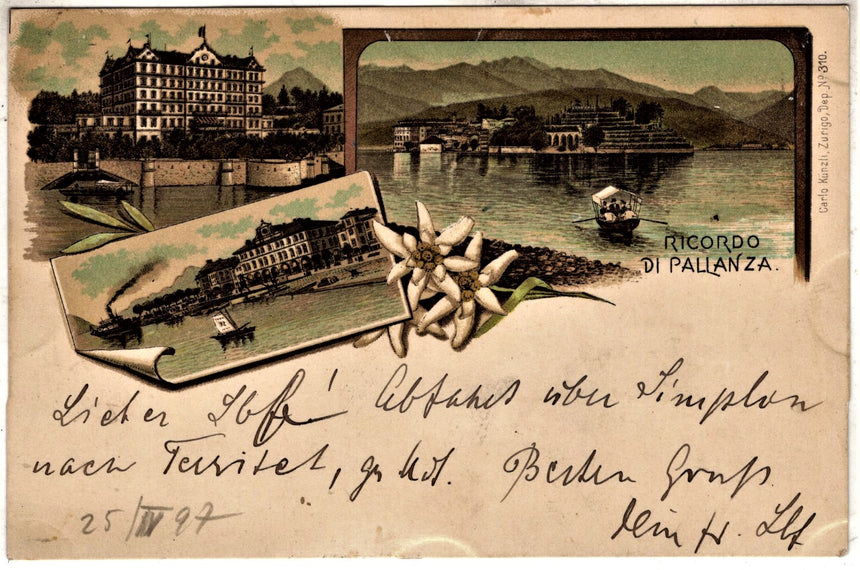 RICORDO
DI PALLANZA.
Carlo Künzli, Zurigo, Dep. No 310.
Lieber Abfahrt über Simplon
nach Territet, Besten Gruß
25/IV 97
Dein